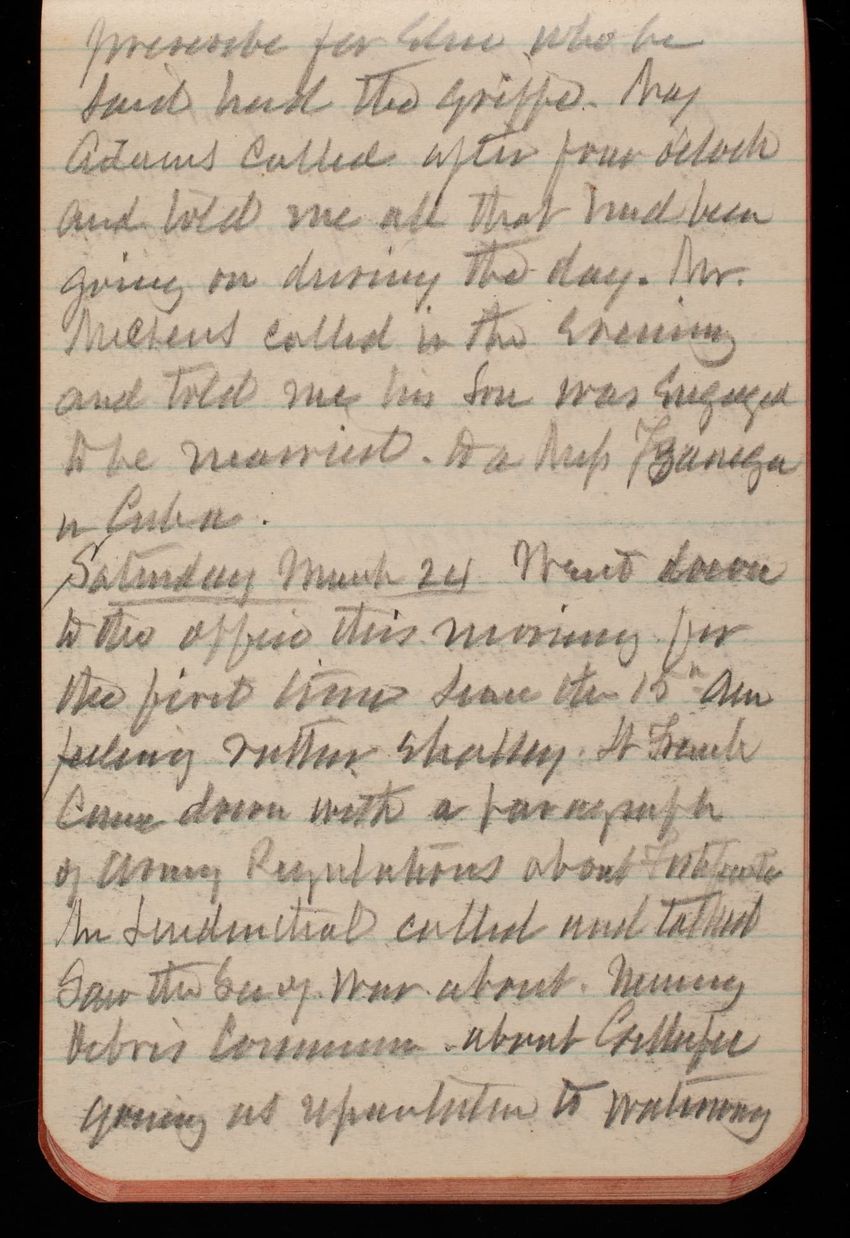 prescribe for Elsie who he
said had the Grippe. May
Adams called after four o'clock
and told me all that had been
going on during the day. Mr.
called in the Evening
and told me his Son was Engaged
to be married. to a Miss
in Cuba.
Saturday March 24 Went down
to the office this morning for
the first time since the 15" Am
feeling rather Shakey. Lt
Came down with a paragraph
of Army Regulations about
Mr called and talked
Saw the Sec of War about. Mining
Debris Commission. about
going as to